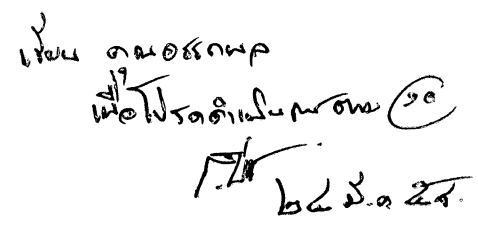 เรียน คุณอรรถพล
เพื่อโปรดดำเนินการตาม
๒๘ มี.ค. ๕๘